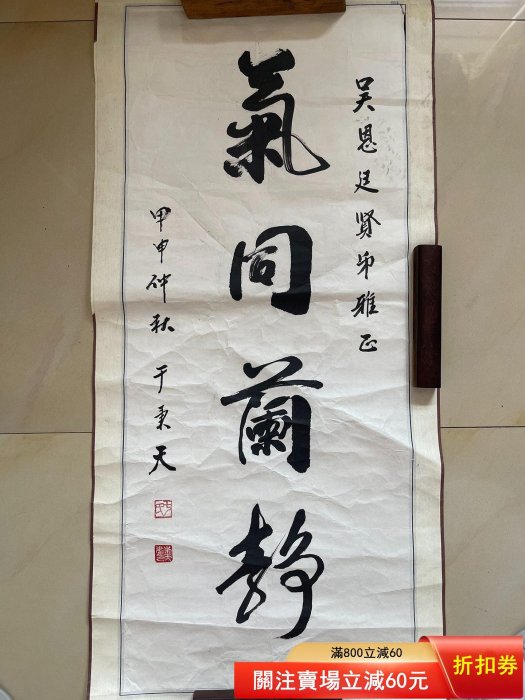 吴恩廷贤弟雅正
氣同蘭靜
甲申仲秋 于秉天
滿800立減60
關注賣場立減60元
折扣券